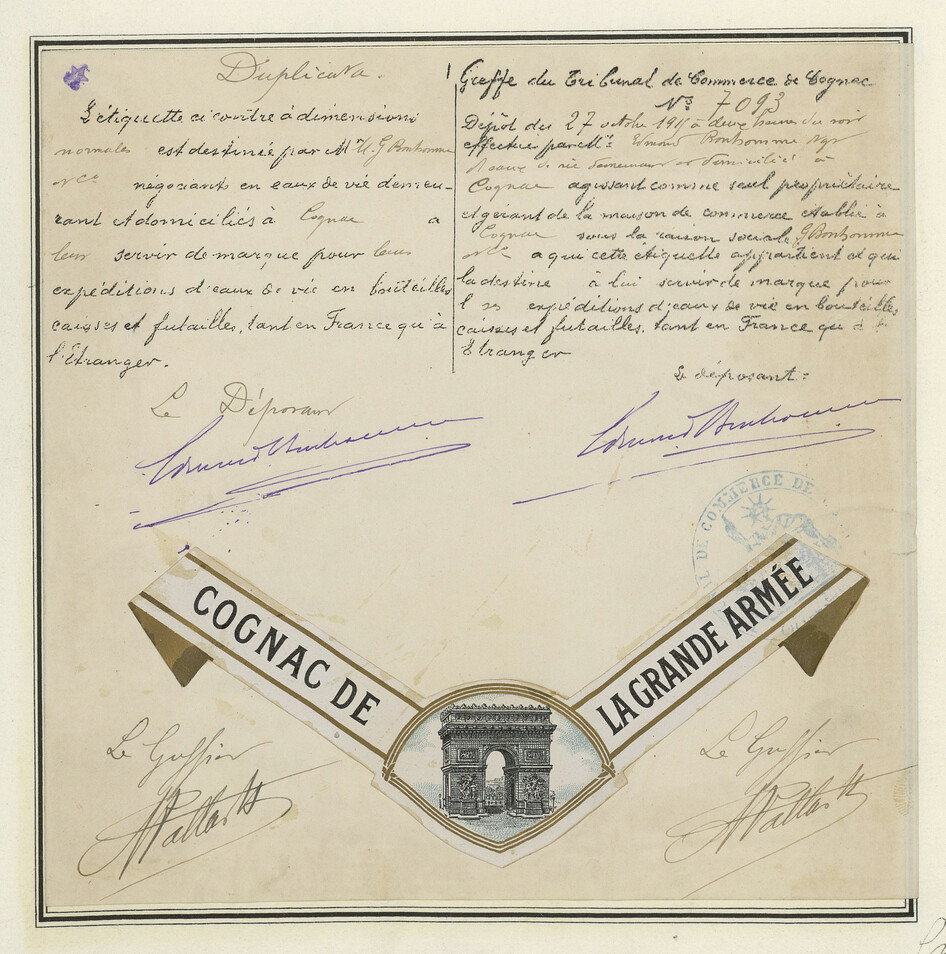 Duplicata.
L'étiquette ci contre à dimensions
normales est destinée par MM G Bonhomme
& Cie négociants en eaux de vie demeu-
rant et domiciliés à Cognac a
leur servir de marque pour leurs
expéditions d'eaux de vie en bouteilles
caisses et futailles, tant en France qu'à
l'Etranger.
Le Déposant
Edmond Bonhomme
Greffe du Tribunal de Commerce de Cognac
No 7093
Dépôt du 27 octobre 1911 à deux heures du soir
effectué par Mr: Edmond Bonhomme Ngt
d'eaux de vie demeurant et domicilié à
Cognac agissant comme seul propriétaire
et gérant de la maison de commerce établie à
Cognac sous la raison sociale G Bonhomme
& Cie a qui cette etiquette appartient et qui
la destine à lui servir de marque pour
ses expéditions d'eaux de vie en bouteilles,
caisses et futailles, tant en France qu'à l'
Etranger
Le déposant:
Edmond Bonhomme
DE COMMERCE DE
COGNAC DE
LA GRANDE ARMÉE
Le Greffier
Le Greffier